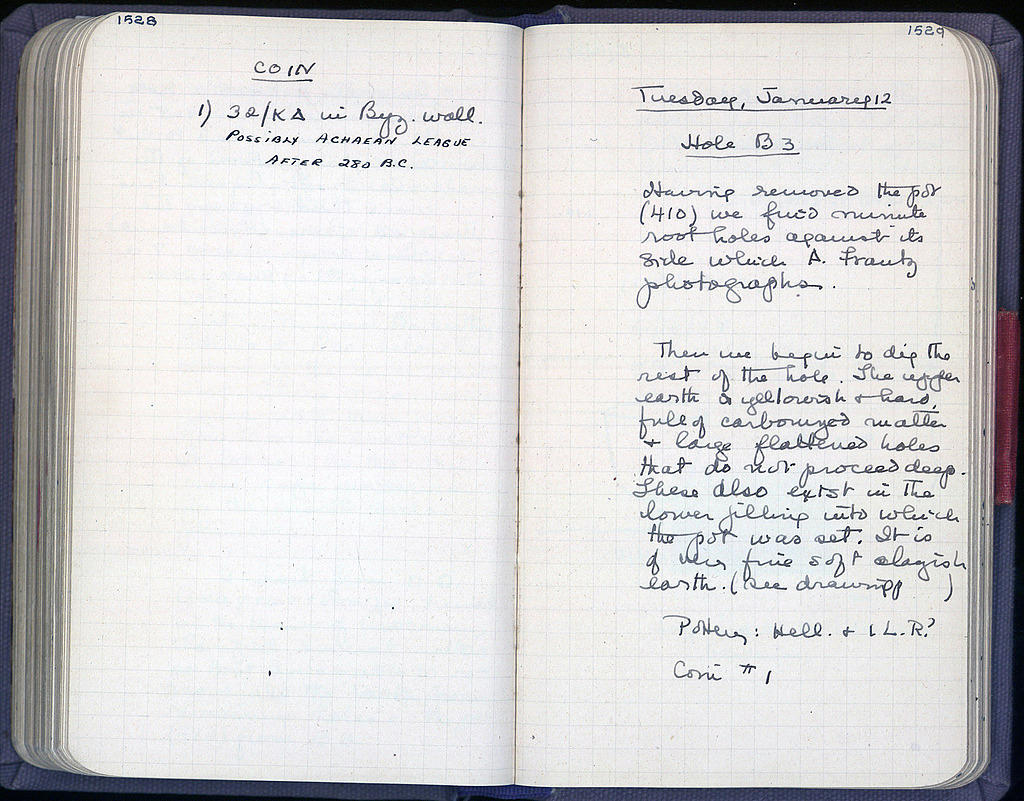 1528
COIN
1) 32/ΚΔ in Byz. wall.
POSSIBLY ACHAEAN LEAGUE
AFTER 280 B.C.
1529
Tuesday, January 12
Hole B 3
Having removed the pot
(410) we find minute
root holes against its
side which A. Frantz
photographs.
Then we begin to dig the
rest of the hole. The upper
earth is yellowish & hard,
full of carbonized matter
& large flattened holes
that do not proceed deep.
These also exist in the
lower filling into which
the pot was set. It is
of very fine soft clayish
earth. (see drawing )
Pottery: Hell. & 1 L.R.?
Coin # 1